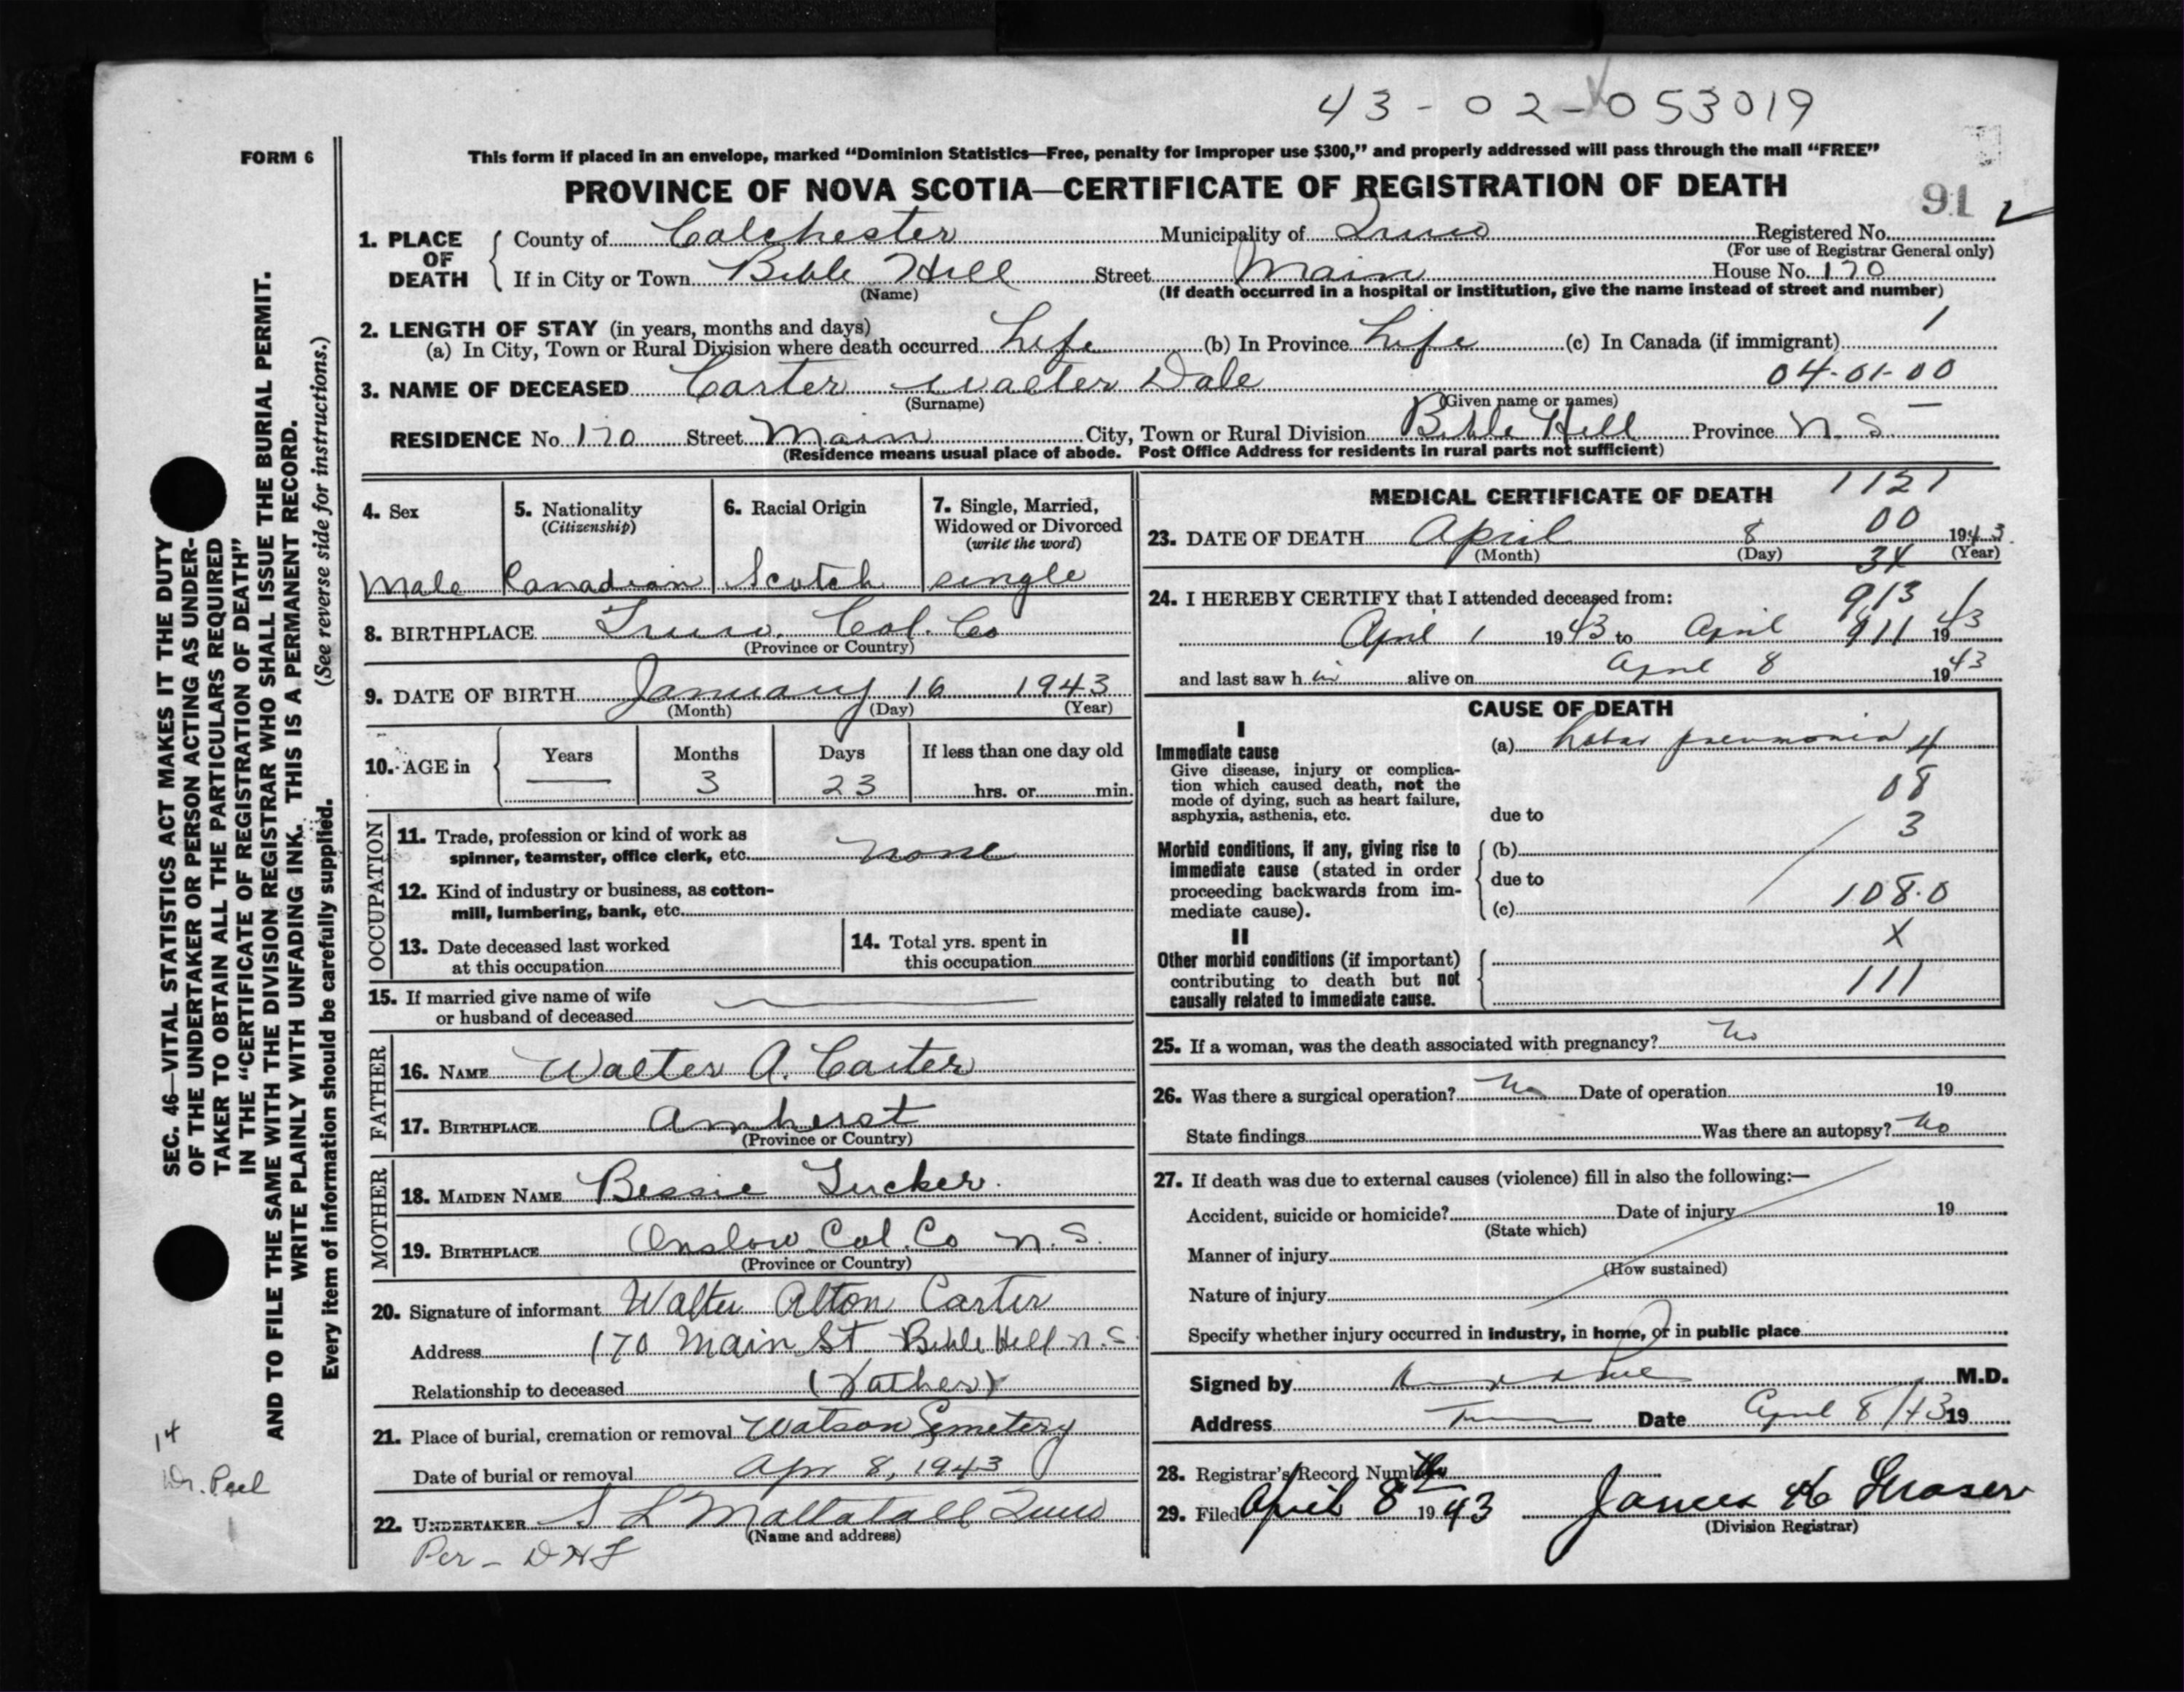 43-02-053019
FORM 6
This form if placed in an envelope, marked “Dominion Statistics—Free, penalty for improper use $300,” and properly addressed will pass through the mail “FREE”
PROVINCE OF NOVA SCOTIA—CERTIFICATE OF REGISTRATION OF DEATH
91
1. PLACE OF DEATH
County of Colchester Municipality of Truro Registered No.
(For use of Registrar General only)
If in City or Town Bible Hill Street Main House No. 170
(Name) (If death occurred in a hospital or institution, give the name instead of street and number)
2. LENGTH OF STAY (in years, months and days)
(a) In City, Town or Rural Division where death occurred Life (b) In Province Life (c) In Canada (if immigrant) 1
3. NAME OF DECEASED Carter Walter Dale 04-01-00
(Surname) (Given name or names)
RESIDENCE No. 170 Street Main City, Town or Rural Division Bible Hill Province N. S.
(Residence means usual place of abode. Post Office Address for residents in rural parts not sufficient)
4. Sex
Male
5. Nationality
(Citizenship)
Canadian
6. Racial Origin
Scotch
7. Single, Married, Widowed or Divorced
(write the word)
single
8. BIRTHPLACE Truro. Col. Co
(Province or Country)
9. DATE OF BIRTH January 16 1943
(Month) (Day) (Year)
10. AGE in
Years Months Days If less than one day old
— 3 23 hrs. or min.
OCCUPATION
11. Trade, profession or kind of work as
spinner, teamster, office clerk, etc. none
12. Kind of industry or business, as cotton-
mill, lumbering, bank, etc.
13. Date deceased last worked
at this occupation
14. Total yrs. spent in
this occupation
15. If married give name of wife
or husband of deceased
FATHER
16. NAME Walter A. Carter
17. BIRTHPLACE Amherst
(Province or Country)
MOTHER
18. MAIDEN NAME Bessie Tucker.
19. BIRTHPLACE Onslow Col. Co N. S.
(Province or Country)
20. Signature of informant Walter Alton Carter
Address 170 Main St Bible Hill N. S.
Relationship to deceased (Father)
21. Place of burial, cremation or removal Watson Cemetery
Date of burial or removal Apr 8, 1943
22. UNDERTAKER S L Mattatall Truro
(Name and address)
Per - DHF
MEDICAL CERTIFICATE OF DEATH 1121
00
23. DATE OF DEATH April 8 1943
(Month) (Day) (Year)
3X
24. I HEREBY CERTIFY that I attended deceased from:
913 1
April 1 1943 to April 1943
and last saw h im alive on April 8 1943
CAUSE OF DEATH
I
Immediate cause
Give disease, injury or complica-
tion which caused death, not the
mode of dying, such as heart failure,
asphyxia, asthenia, etc.
(a) Lobar pneumonia 4
08
due to
3
Morbid conditions, if any, giving rise to
immediate cause (stated in order
proceeding backwards from im-
mediate cause).
(b)
due to
(c) 108.0
II
X
Other morbid conditions (if important)
contributing to death but not
causally related to immediate cause.
111
25. If a woman, was the death associated with pregnancy? No
26. Was there a surgical operation? No Date of operation 19
State findings Was there an autopsy? No
27. If death was due to external causes (violence) fill in also the following:—
Accident, suicide or homicide? Date of injury 19
(State which)
Manner of injury
(How sustained)
Nature of injury
Specify whether injury occurred in industry, in home, or in public place
Signed by M.D.
Address Truro Date April 8/43 19
28. Registrar's Record Number
29. Filed April 8th 1943 James H Fraser
(Division Registrar)
SEC. 46—VITAL STATISTICS ACT MAKES IT THE DUTY
OF THE UNDERTAKER OR PERSON ACTING AS UNDER-
TAKER TO OBTAIN ALL THE PARTICULARS REQUIRED
IN THE “CERTIFICATE OF REGISTRATION OF DEATH”
AND TO FILE THE SAME WITH THE DIVISION REGISTRAR WHO SHALL ISSUE THE BURIAL PERMIT.
WRITE PLAINLY WITH UNFADING INK. THIS IS A PERMANENT RECORD.
(See reverse side for instructions.)
Every item of information should be carefully supplied.
14
Dr. Peel